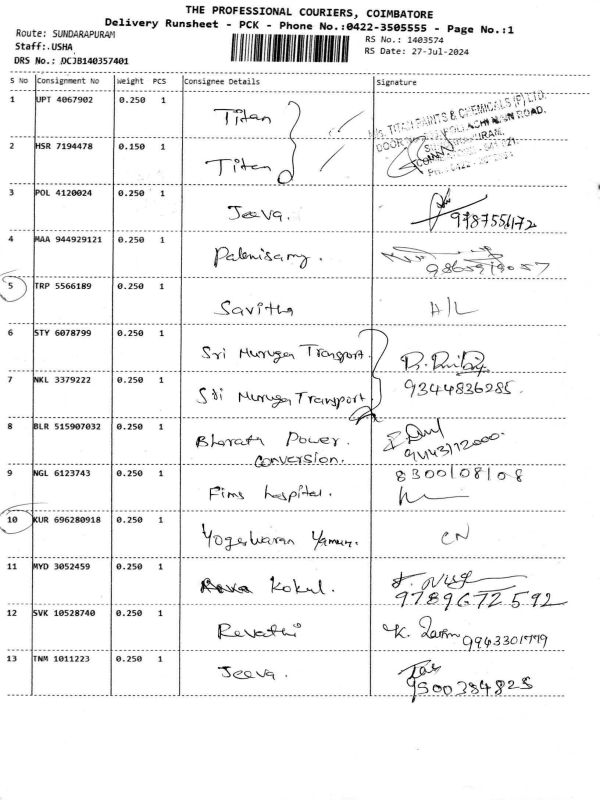 THE PROFESSIONAL COURIERS, COIMBATORE
Delivery Runsheet - PCK - Phone No.:0422-3505555 - Page No.:1
Route: SUNDARAPURAM
RS No.: 1403574
Staff:.USHA
RS Date: 27-Jul-2024
DRS No.: DCJB140357401
S No Consignment No Weight PCS Consignee Details Signature
1 UPT 4067902 0.250 1 Titan
M/s. TITAN PAINTS & CHEMICALS (P) LTD.
DOOR POLLACHI MAIN ROAD,
2 HSR 7194478 0.150 1 Titan
3 POL 4120024 0.250 1 Jeeva.
4 MAA 944929121 0.250 1 Palanisamy.
5 TRP 5566189 0.250 1 Savitha A/L
6 STY 6078799 0.250 1 Sri Muruga Transport.
7 NKL 3379222 0.250 1 Sri Muruga Transport. 9344836285.
8 BLR 515907032 0.250 1 Bharath Power.
conversion.
9 NGL 6123743 0.250 1 Fims hospital. 8300108108
10 KUR 696280918 0.250 1 Yogeshwaran CN
11 MYD 3052459 0.250 1 Kokul. 9789672592
12 SVK 10528740 0.250 1 Revathi K.
13 TNM 1011223 0.250 1 Jeeva. 9500384825